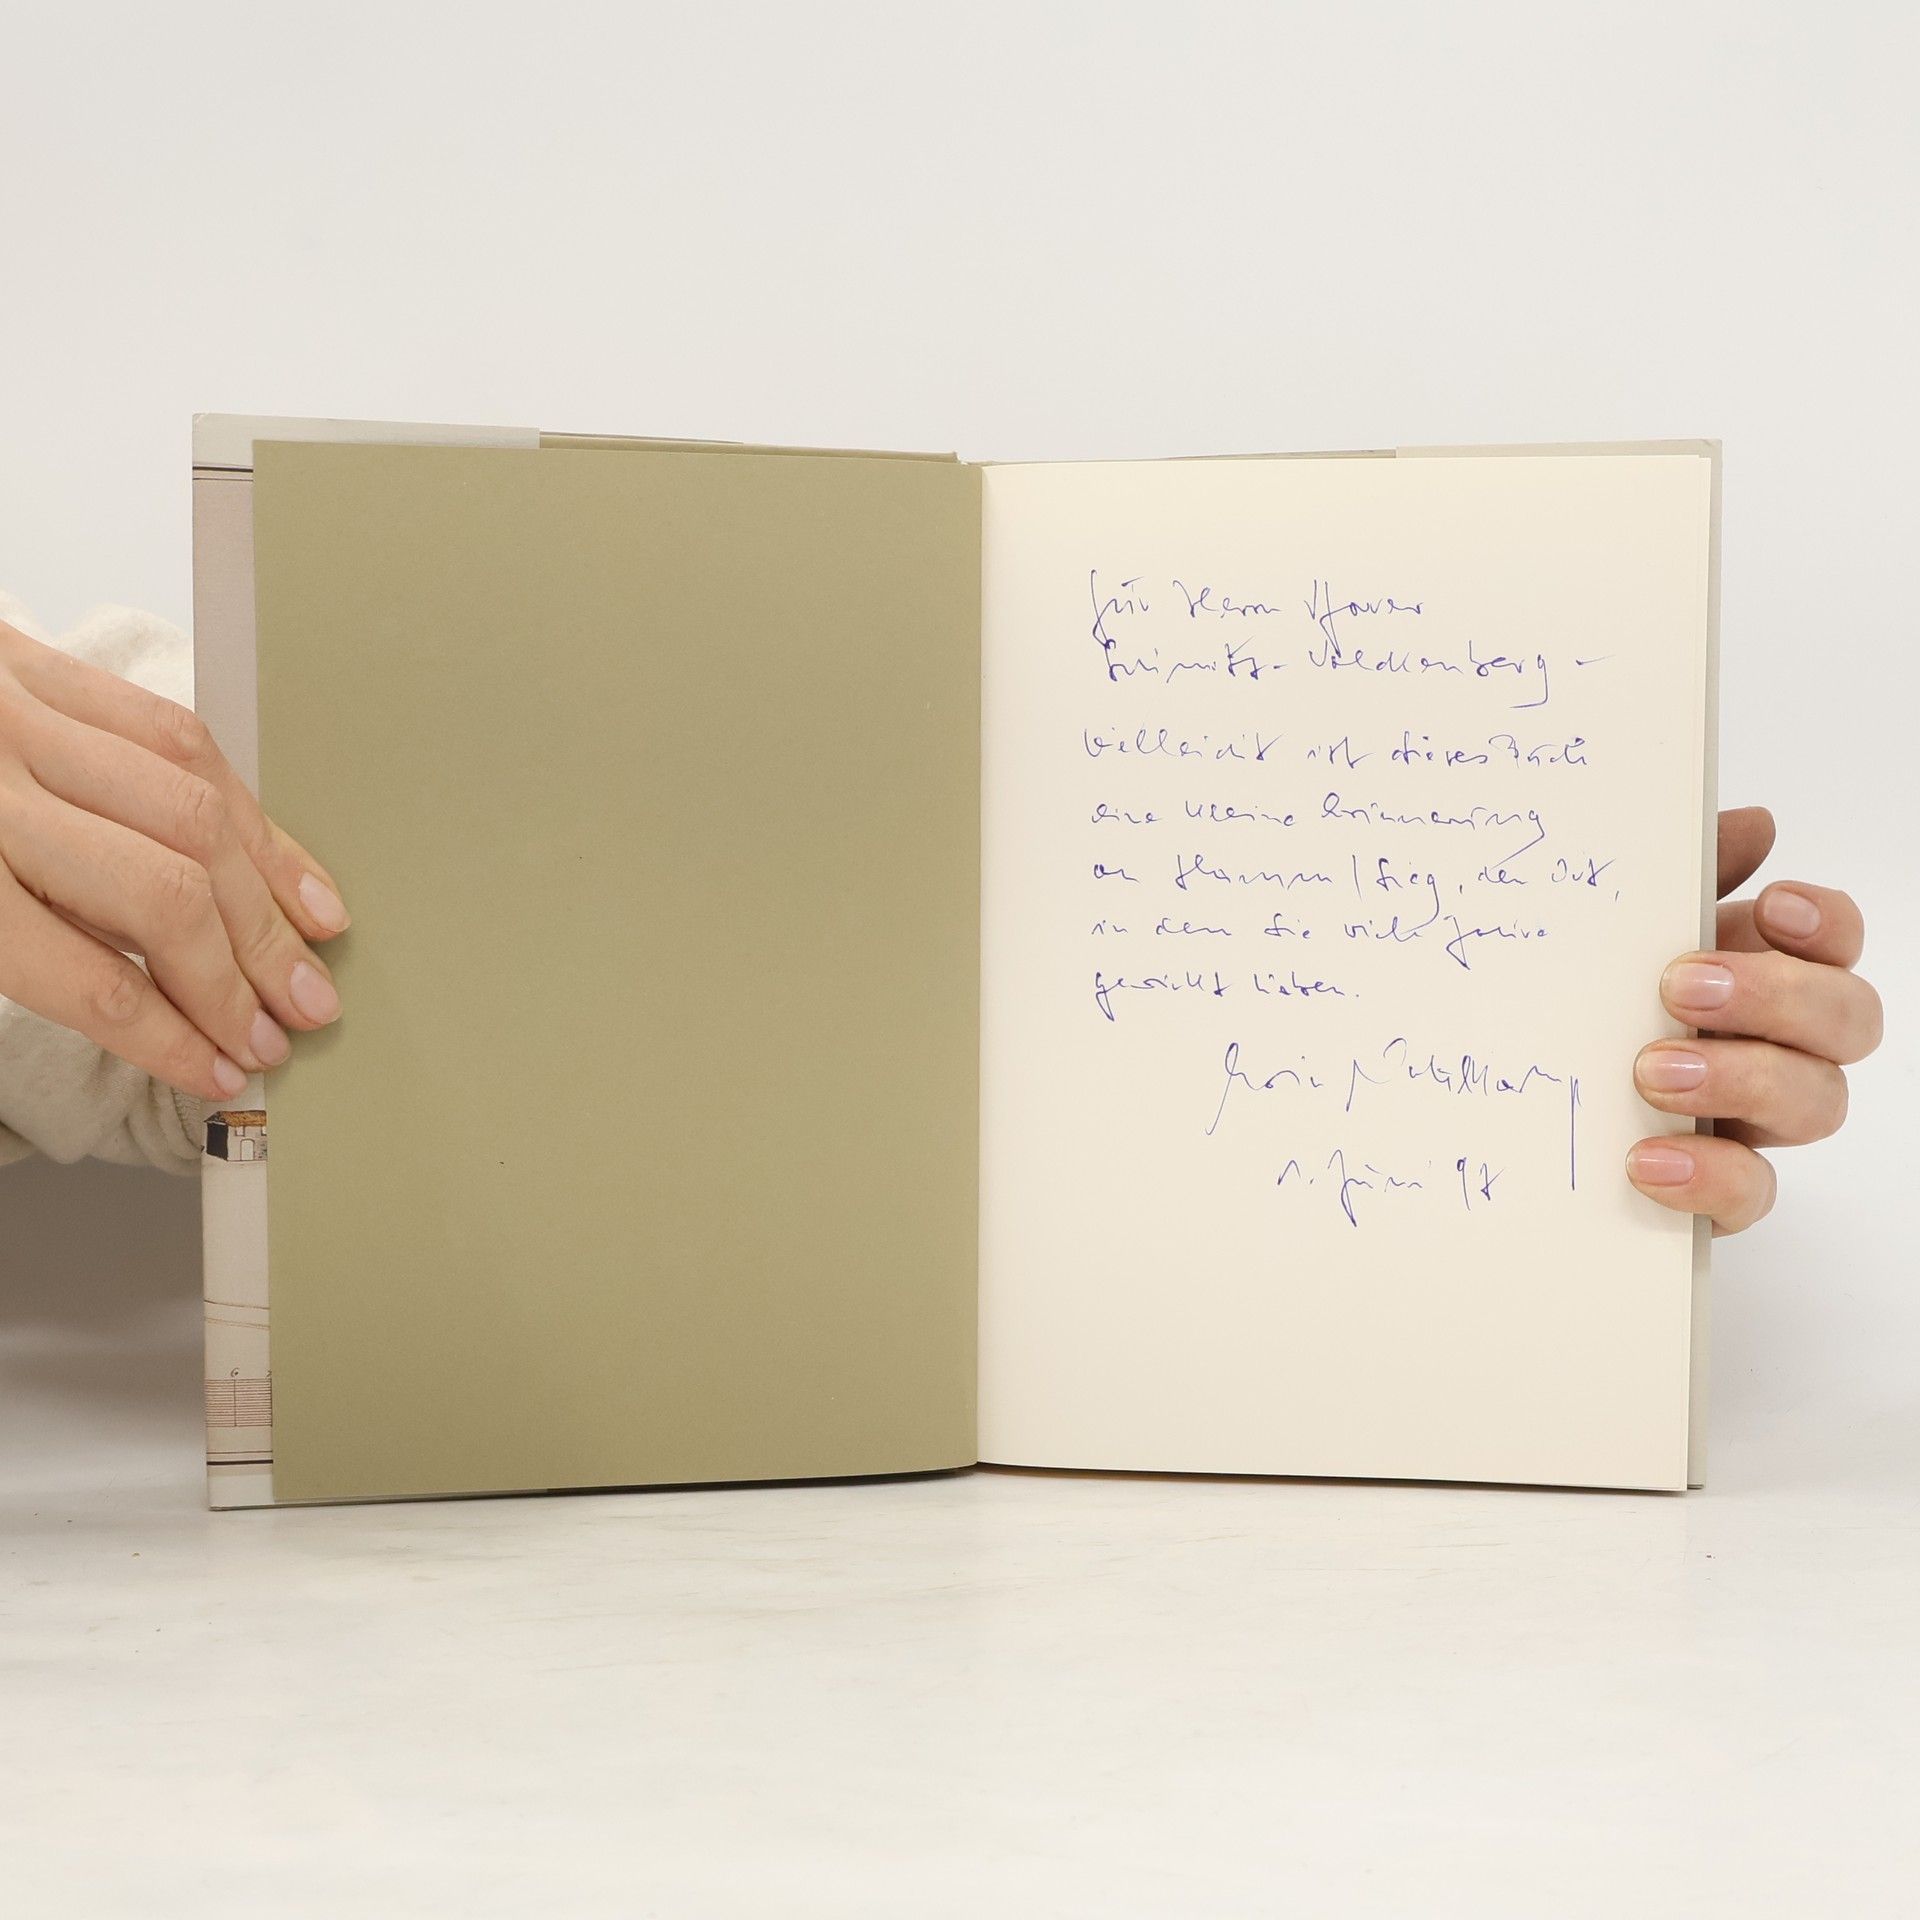 für Herrn Pfarrer
Schmitz-Valckenberg –
vielleicht ist dieses Buch
eine kleine Erinnerung
an Hamm/Sieg, den Ort,
in dem Sie viele Jahre
gewirkt haben.
Erwin
1. Juni 97
6